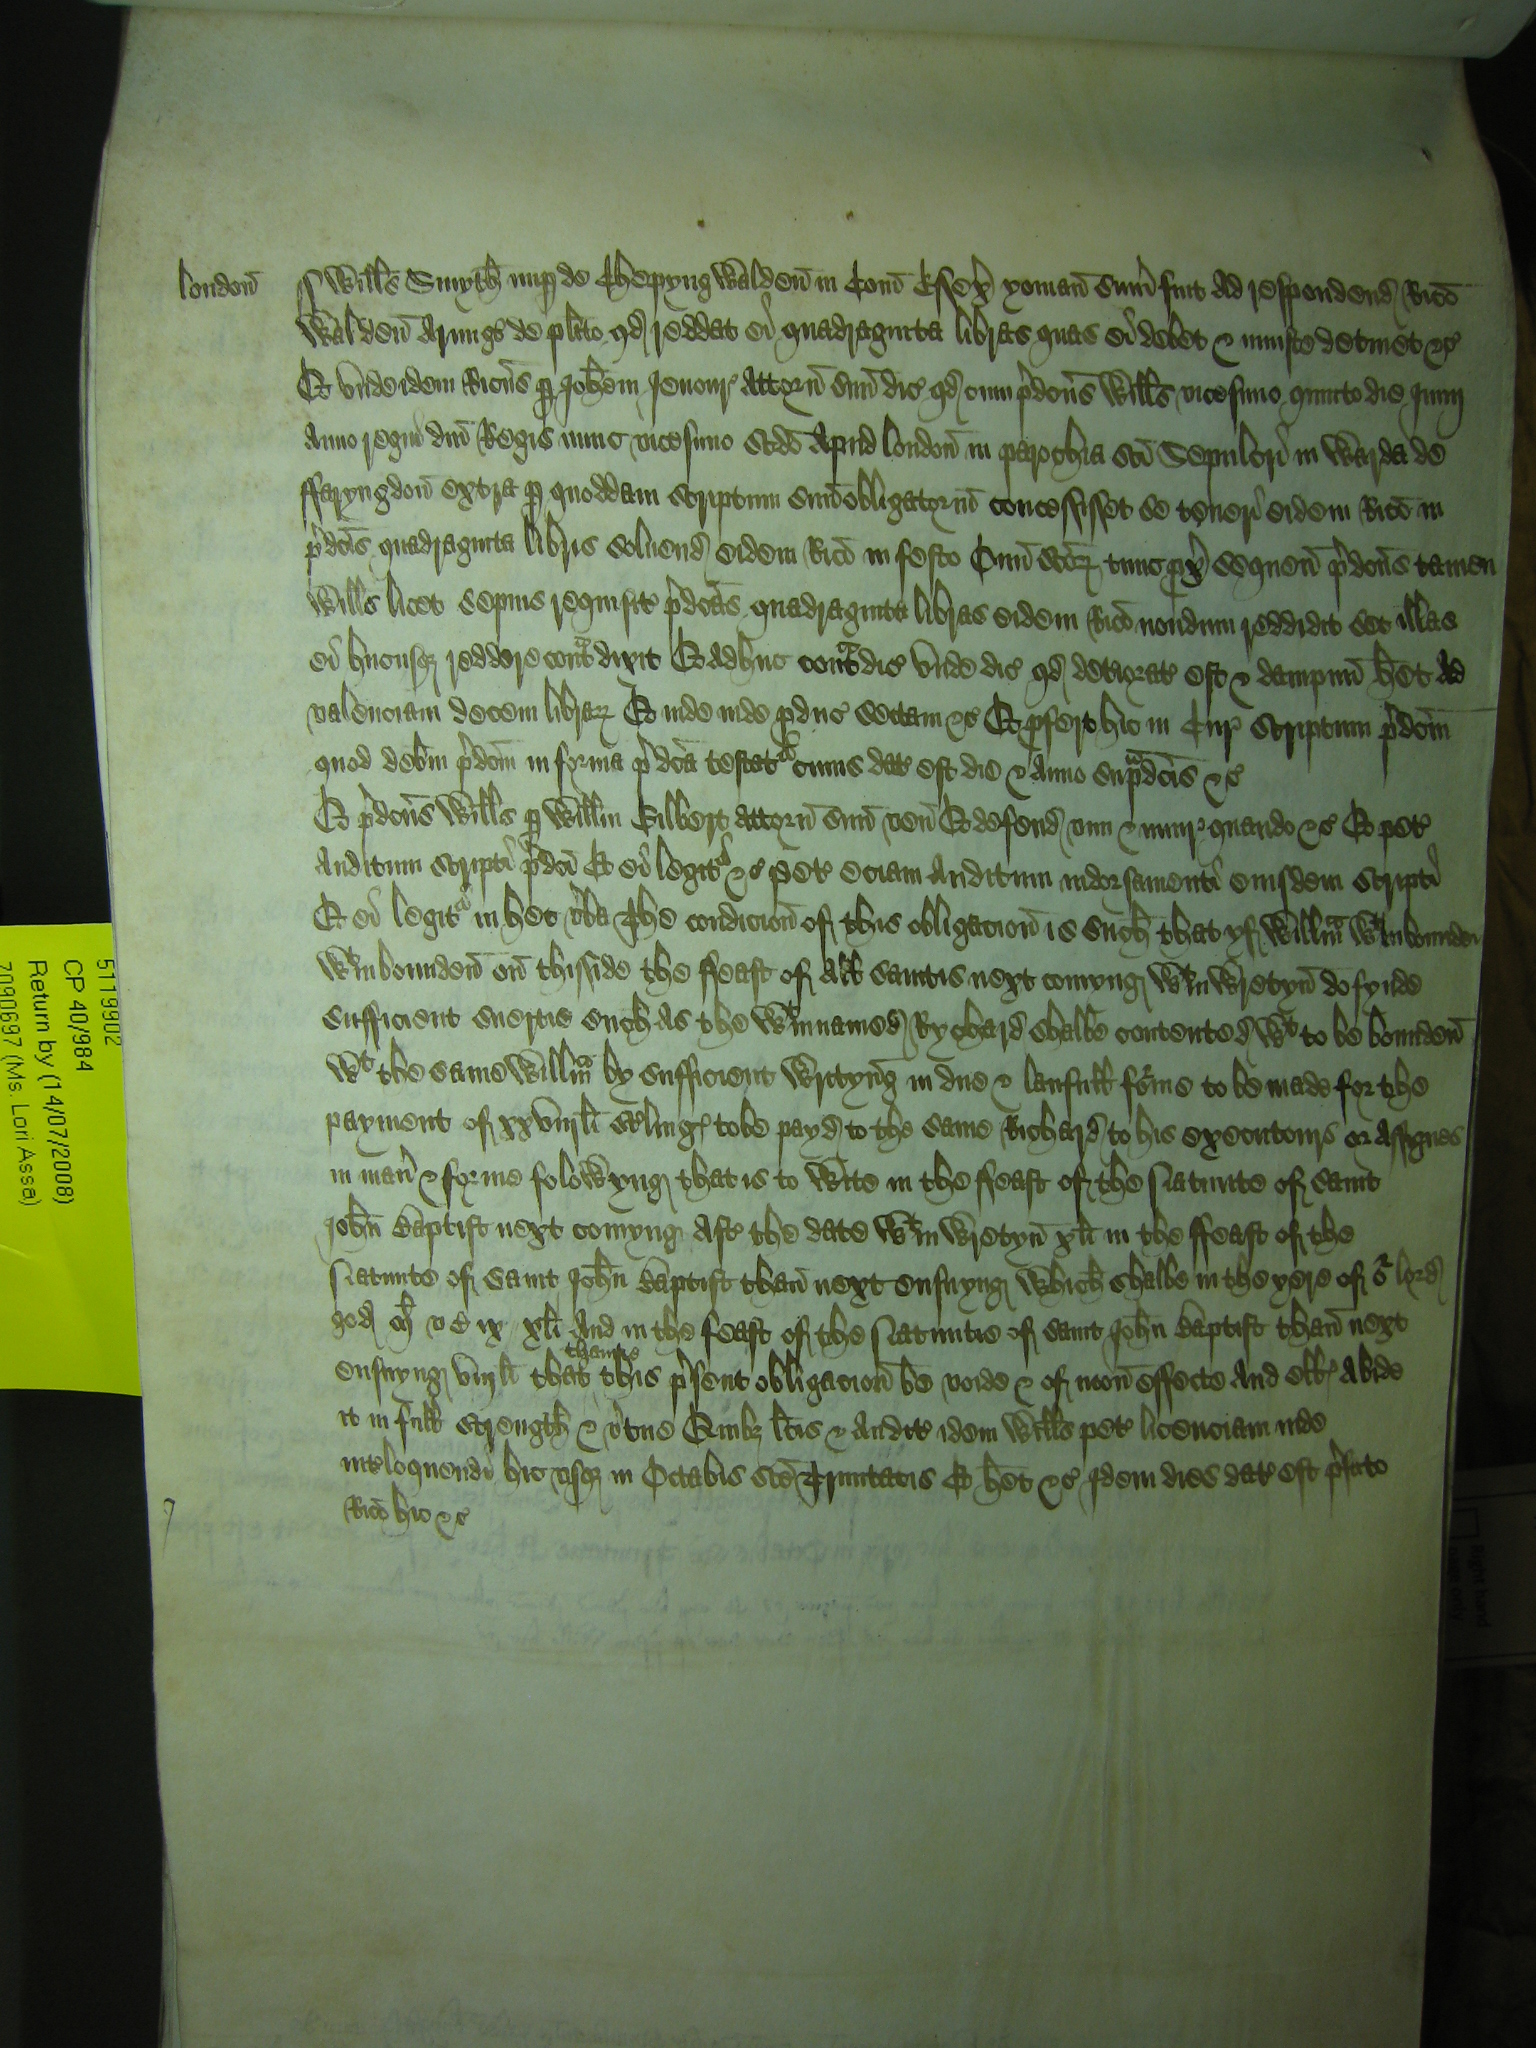 london̄ Willɫs Smyth nup de Chepyng Walden̄ in Com̄ Essex̄ yoman̄ sum̄ fuit ad respondend Rico
Walden̄ Armig̃ de plito qd reddat ei quadraginta libras quas ei debet & iniuste detinet &c
Et unde idem Ricūs p Johēm Jenour Attorn̄ suū dic qd cum p̄dcūs Willɫs vicesimo quinto die Junij
Anno regni dn̄i Regis nunc vicesimo scdo Apud london̄ in parochia sc̄i Sepulcri in Warda de
ffaryngdon̄ extra p quoddam scriptum suū obligatoriū concessisset se teneri eidem Rico in
p̄dcīs quadraginta libris soluend eidem Rico in festo Om̄i Sc̄oꝝ tunc px̄ sequen̄ p̄dcūs tamen
Willɫs licet sepius requisit p̄dcās quadraginta libras eidem Rico nondum reddidit set illas
ei hucusqꝫ reddere contᵃdixit Et adhuc contᵃdic unde dic qd deteriorat est & dampnū h̄et ad
valenciam decem libraꝝ Et inde inde pduc sectam &c Et pfert hic in Cur scriptum p̄dcm̄
quod debm̄ p̄dcm̄ in forma p̄dcā testatʳ cuius dat est die & Anno supᵃdcīs &c
Et p̄dcūs Willɫs p Willm̄ Eilbert attorn̄ suū ven̄ Et defend vim & iniur quando &c Et pet
Auditum scripti p̄dcī Et ei legitʳ &c pet eciam Auditum indorsamenti eiusdem scripti
Et ei legitʳ in hec v̄ba The condicion̄ of this obligacion̄ is such that yf Willm̄ Wᵗinbounden
Wᵗinbounden̄ on̄ thisside the ffeast of All Saintis next comyng Wᵗin Wretyn̄ do fynde
sufficient suertie such As the Wᵗinnamed Rychard shalbe contented Wᵗ to be bounden̄
Wᵗ the same Willm̄ by sufficient Writyng in due & laufull forme to be made for the
payment of xxviijli sterling to be payd to the same Richard to his executours or assignes
in man̄ & forme folowyng that is to wite in the ffeast of the Natiuite of Saint
John̄ Baptist next comyng Aft the date Wᵗin Wretyn̄ xli in the ffeast of the
Natiuite of Saint John̄ Baptist than̄ next ensuyng Which shalbe in the yere of oʳ lord
god mˡ v C ix xli And in the feast of the Natiuitie of Saint John̄ Baptist than̄ next
ensuyng viijli that thanne this p̄sent obligacion̄ be voide & of noon̄ effecte And ell Abide
it in full strength & v̄tue Quibꝫ lc̄is & Audit idem Willɫs pet licenciam inde
int̄loquendi hic usqꝫ in Octabis sc̄e Trinitatis Et h̄et &c Idem dies dat est p̄fato
Rico hic &c
5119902
CP 40/984
Return by (14/07/2008)
7090697 (Ms. Lori Assa)
Right hand